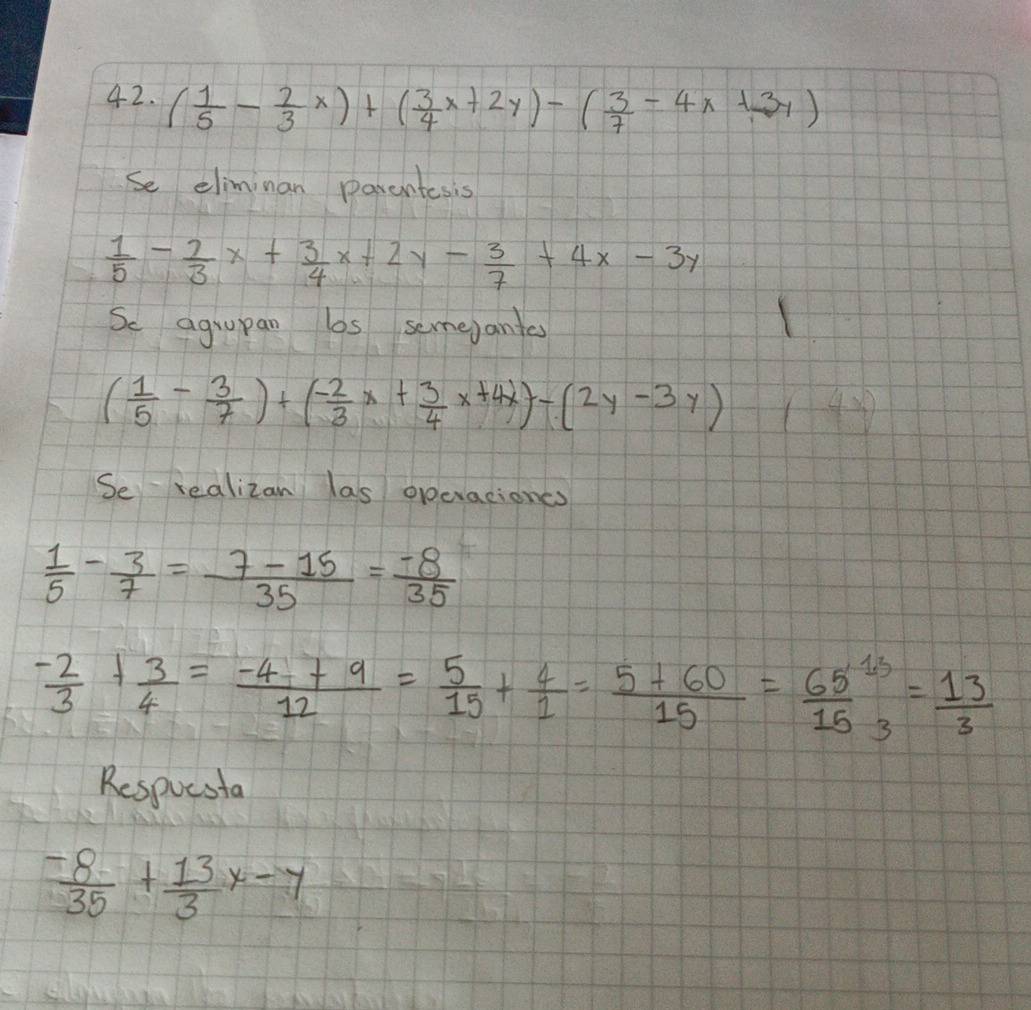 42. (1/5 - 2/3 x) + (3/4 x + 2y) - (3/7 - 4x + 3y)
Se eliminan parentesis
1/5 - 2/3 x + 3/4 x + 2y - 3/7 + 4x - 3y
Se agrupan los semejantes
(1/5 - 3/7) + (-2/3 x + 3/4 x + 4x) - (2y - 3y)
Se realizan las operaciones
1/5 - 3/7 = 7 - 15/35 = -8/35
-2/3 + 3/4 = -4 + 9/12 = 5/15 + 4/1 = 5 + 60/15 = 65/15 13/3 = 13/3
Respuesta
-8/35 + 13/3 x - y